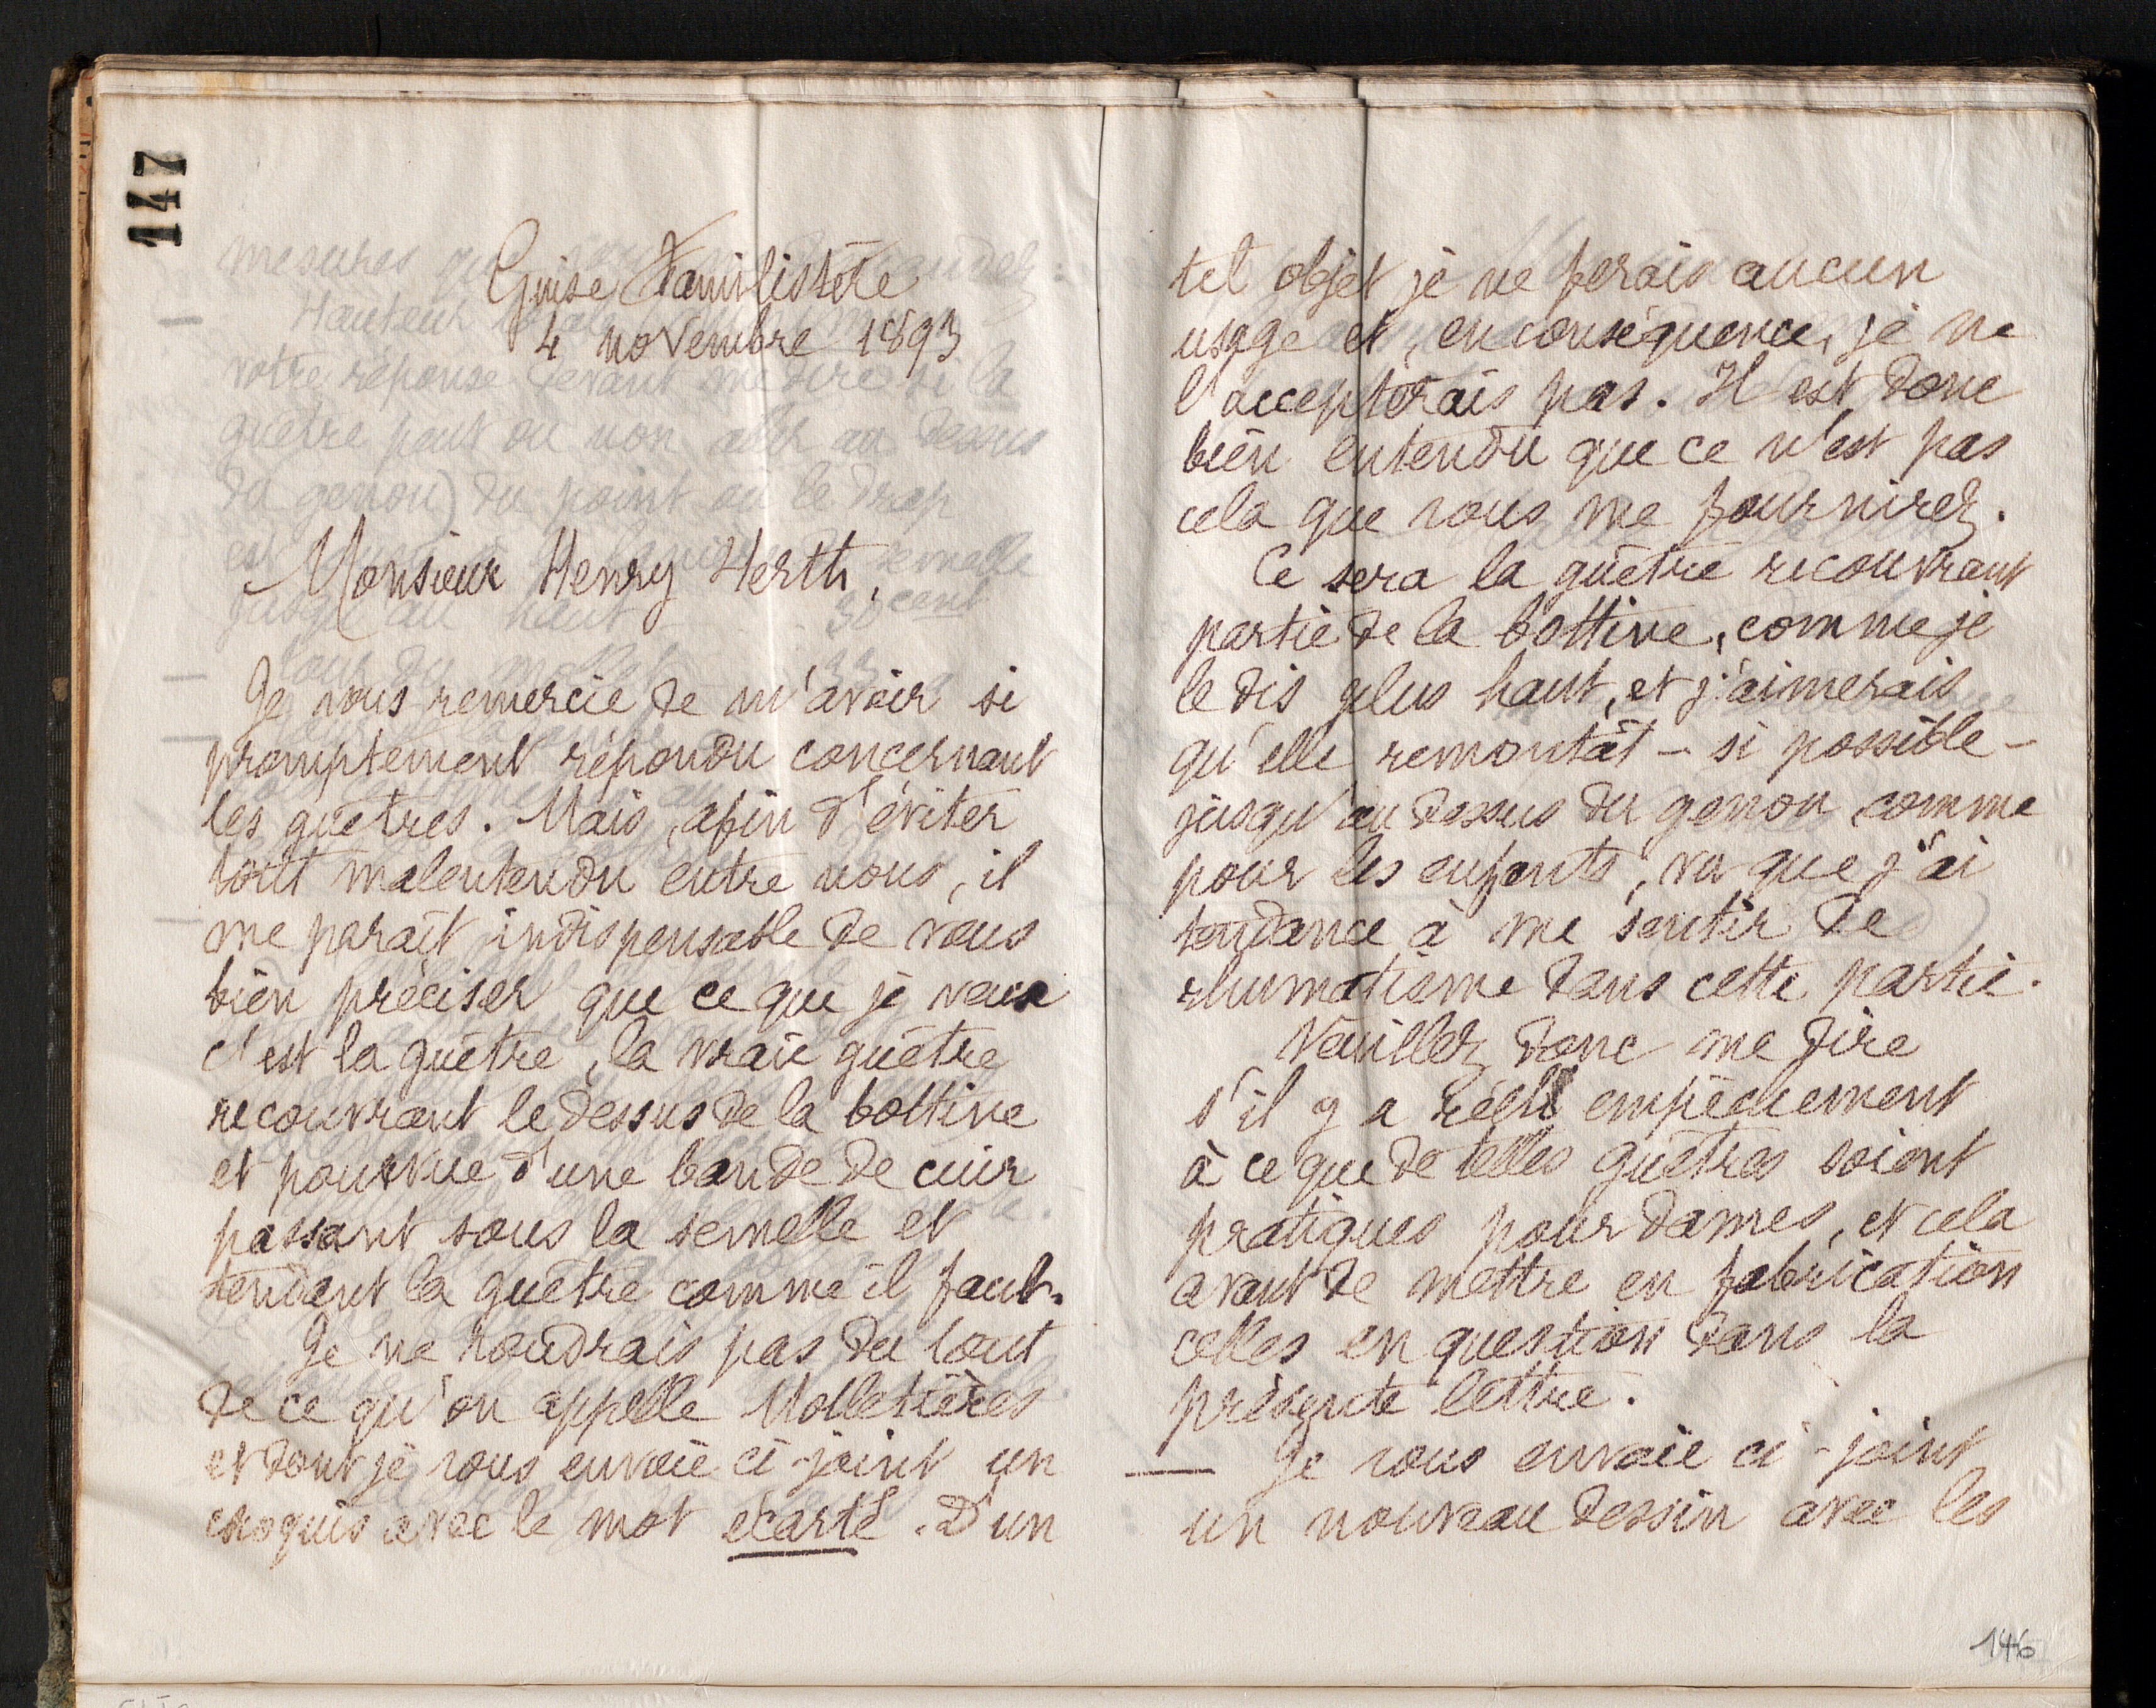 147
Guise Familistère
4 novembre 1893
Monsieur Henry Herth,
Je vous remercie de m'avoir si
promptement répondu concernant
les guêtres. Mais, afin d'éviter
tout malentendu entre nous, il
me paraît indispensable de vous
bien préciser que ce que je veux
c'est la guêtre, la vraie guêtre
recouvrant le dessus de la bottine
et pourvue d'une bande de cuir
passant sous la semelle et
tendant la guêtre comme il faut.
Je ne voudrais pas du tout
de ce qu'on appelle Molletières
et dont je vous envoie ci-joint un
croquis avec le mot écarté. D'un
tel objet je ne ferais aucun
usage et, en conséquence, je ne
l'accepterais pas. Il est donc
bien entendu que ce n'est pas
cela que vous me fournirez.
Ce sera la guêtre recouvrant
partie de la bottine, comme je
le dis plus haut, et j'aimerais
qu'elle remontât - si possible -
jusqu'au dessus du genou comme
pour les enfants, vu que j'ai
tendance à me sentir de
rhumatisme dans cette partie.
Veuillez donc me dire
s'il y a réel empêchement
à ce que de telles guêtres soient
pratiques pour dames, et cela
avant de mettre en fabrication
celles en question dans la
présente lettre.
Je vous envoie ci-joint
un nouveau dessin avec les
146